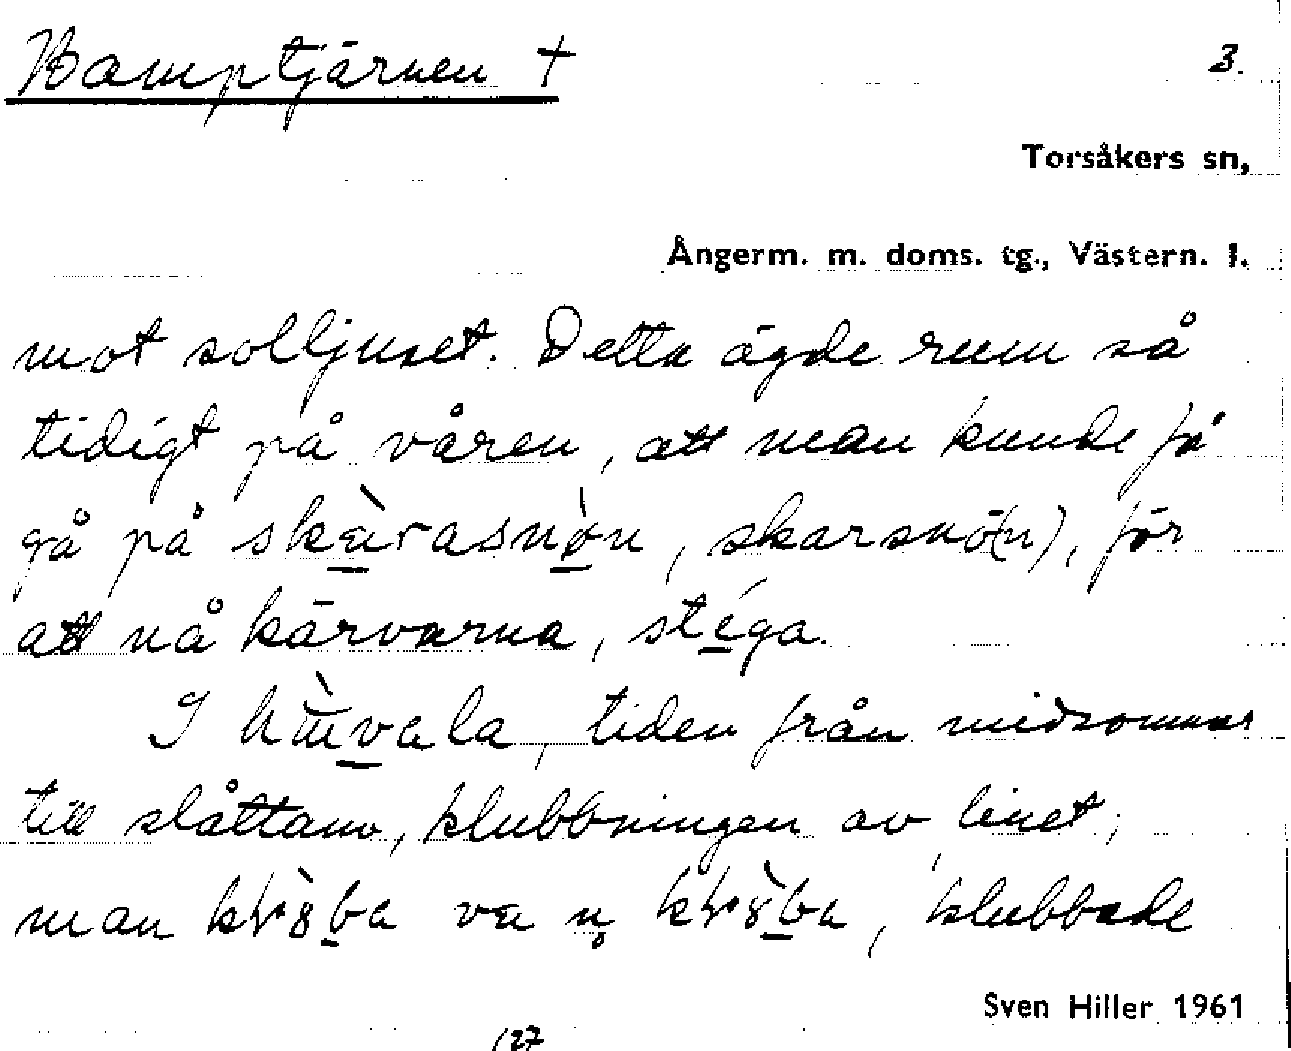 Bamptjärnen †
3.
Torsåkers sn,
Ångerm. m. doms. tg., Västern. l.
mot solljuset. Detta ägde rum så
tidigt på våren, att man kunde få
gå på skàrasnòn, skarsnö(n), för
att nå kärvarna, stéga.
I , tiden från midsommar
till slåttann, klubbningen av linet,
man va klubbade
Sven Hiller 1961
127